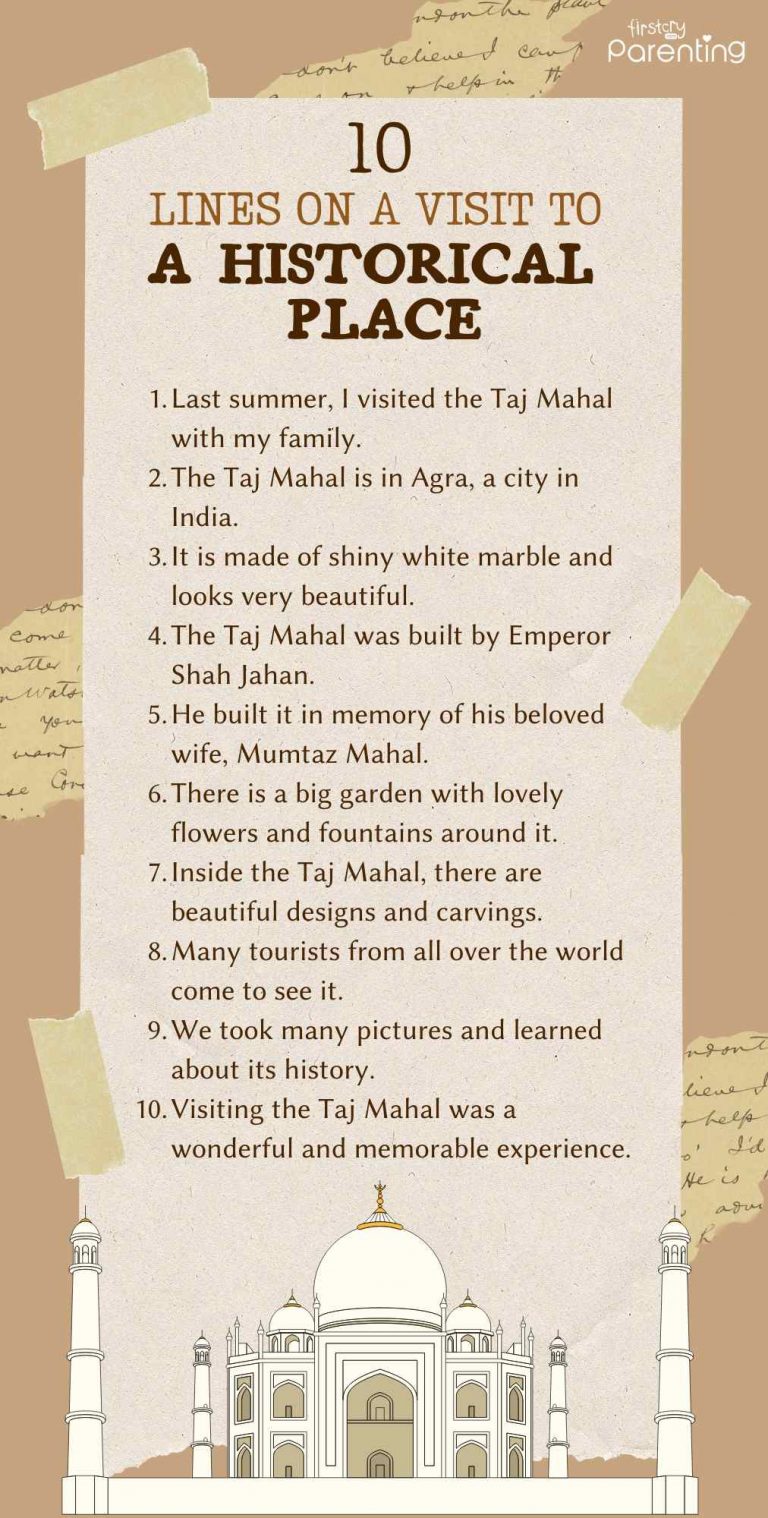 ndon the place
don't believe I can
firstcry
Parenting
on & help in th
10
LINES ON A VISIT TO
A HISTORICAL
PLACE
1. Last summer, I visited the Taj Mahal
with my family.
2. The Taj Mahal is in Agra, a city in
India.
3. It is made of shiny white marble and
looks very beautiful.
4. The Taj Mahal was built by Emperor
Shah Jahan.
5. He built it in memory of his beloved
wife, Mumtaz Mahal.
6. There is a big garden with lovely
flowers and fountains around it.
7. Inside the Taj Mahal, there are
beautiful designs and carvings.
8. Many tourists from all over the world
come to see it.
9. We took many pictures and learned
about its history.
10. Visiting the Taj Mahal was a
wonderful and memorable experience.
don
come
matter
Wats
you
want
se Con
ndon t
lieve I
help
I'd
He is
adv